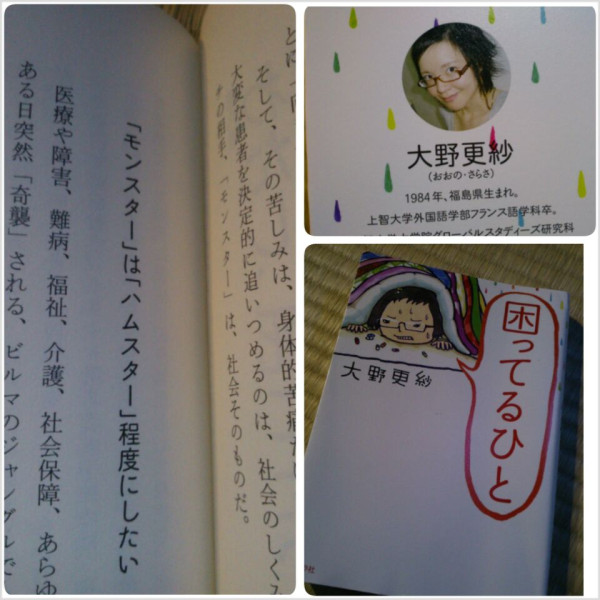 そして、その苦しみは、身体的苦痛だ
大変な患者を決定的に追いつめるのは、社会のしくみ
その相手、「モンスター」は、社会そのものだ。
「モンスター」は「ハムスター」程度にしたい
医療や障害、難病、福祉、介護、社会保障、あらゆ
ある日突然「奇襲」される、ビルマのジャングルで
大野更紗
(おおの・さらさ)
1984年、福島県生まれ。
上智大学外国語学部フランス語学科卒。
大学院グローバルスタディーズ研究科
困ってるひと
大野更紗